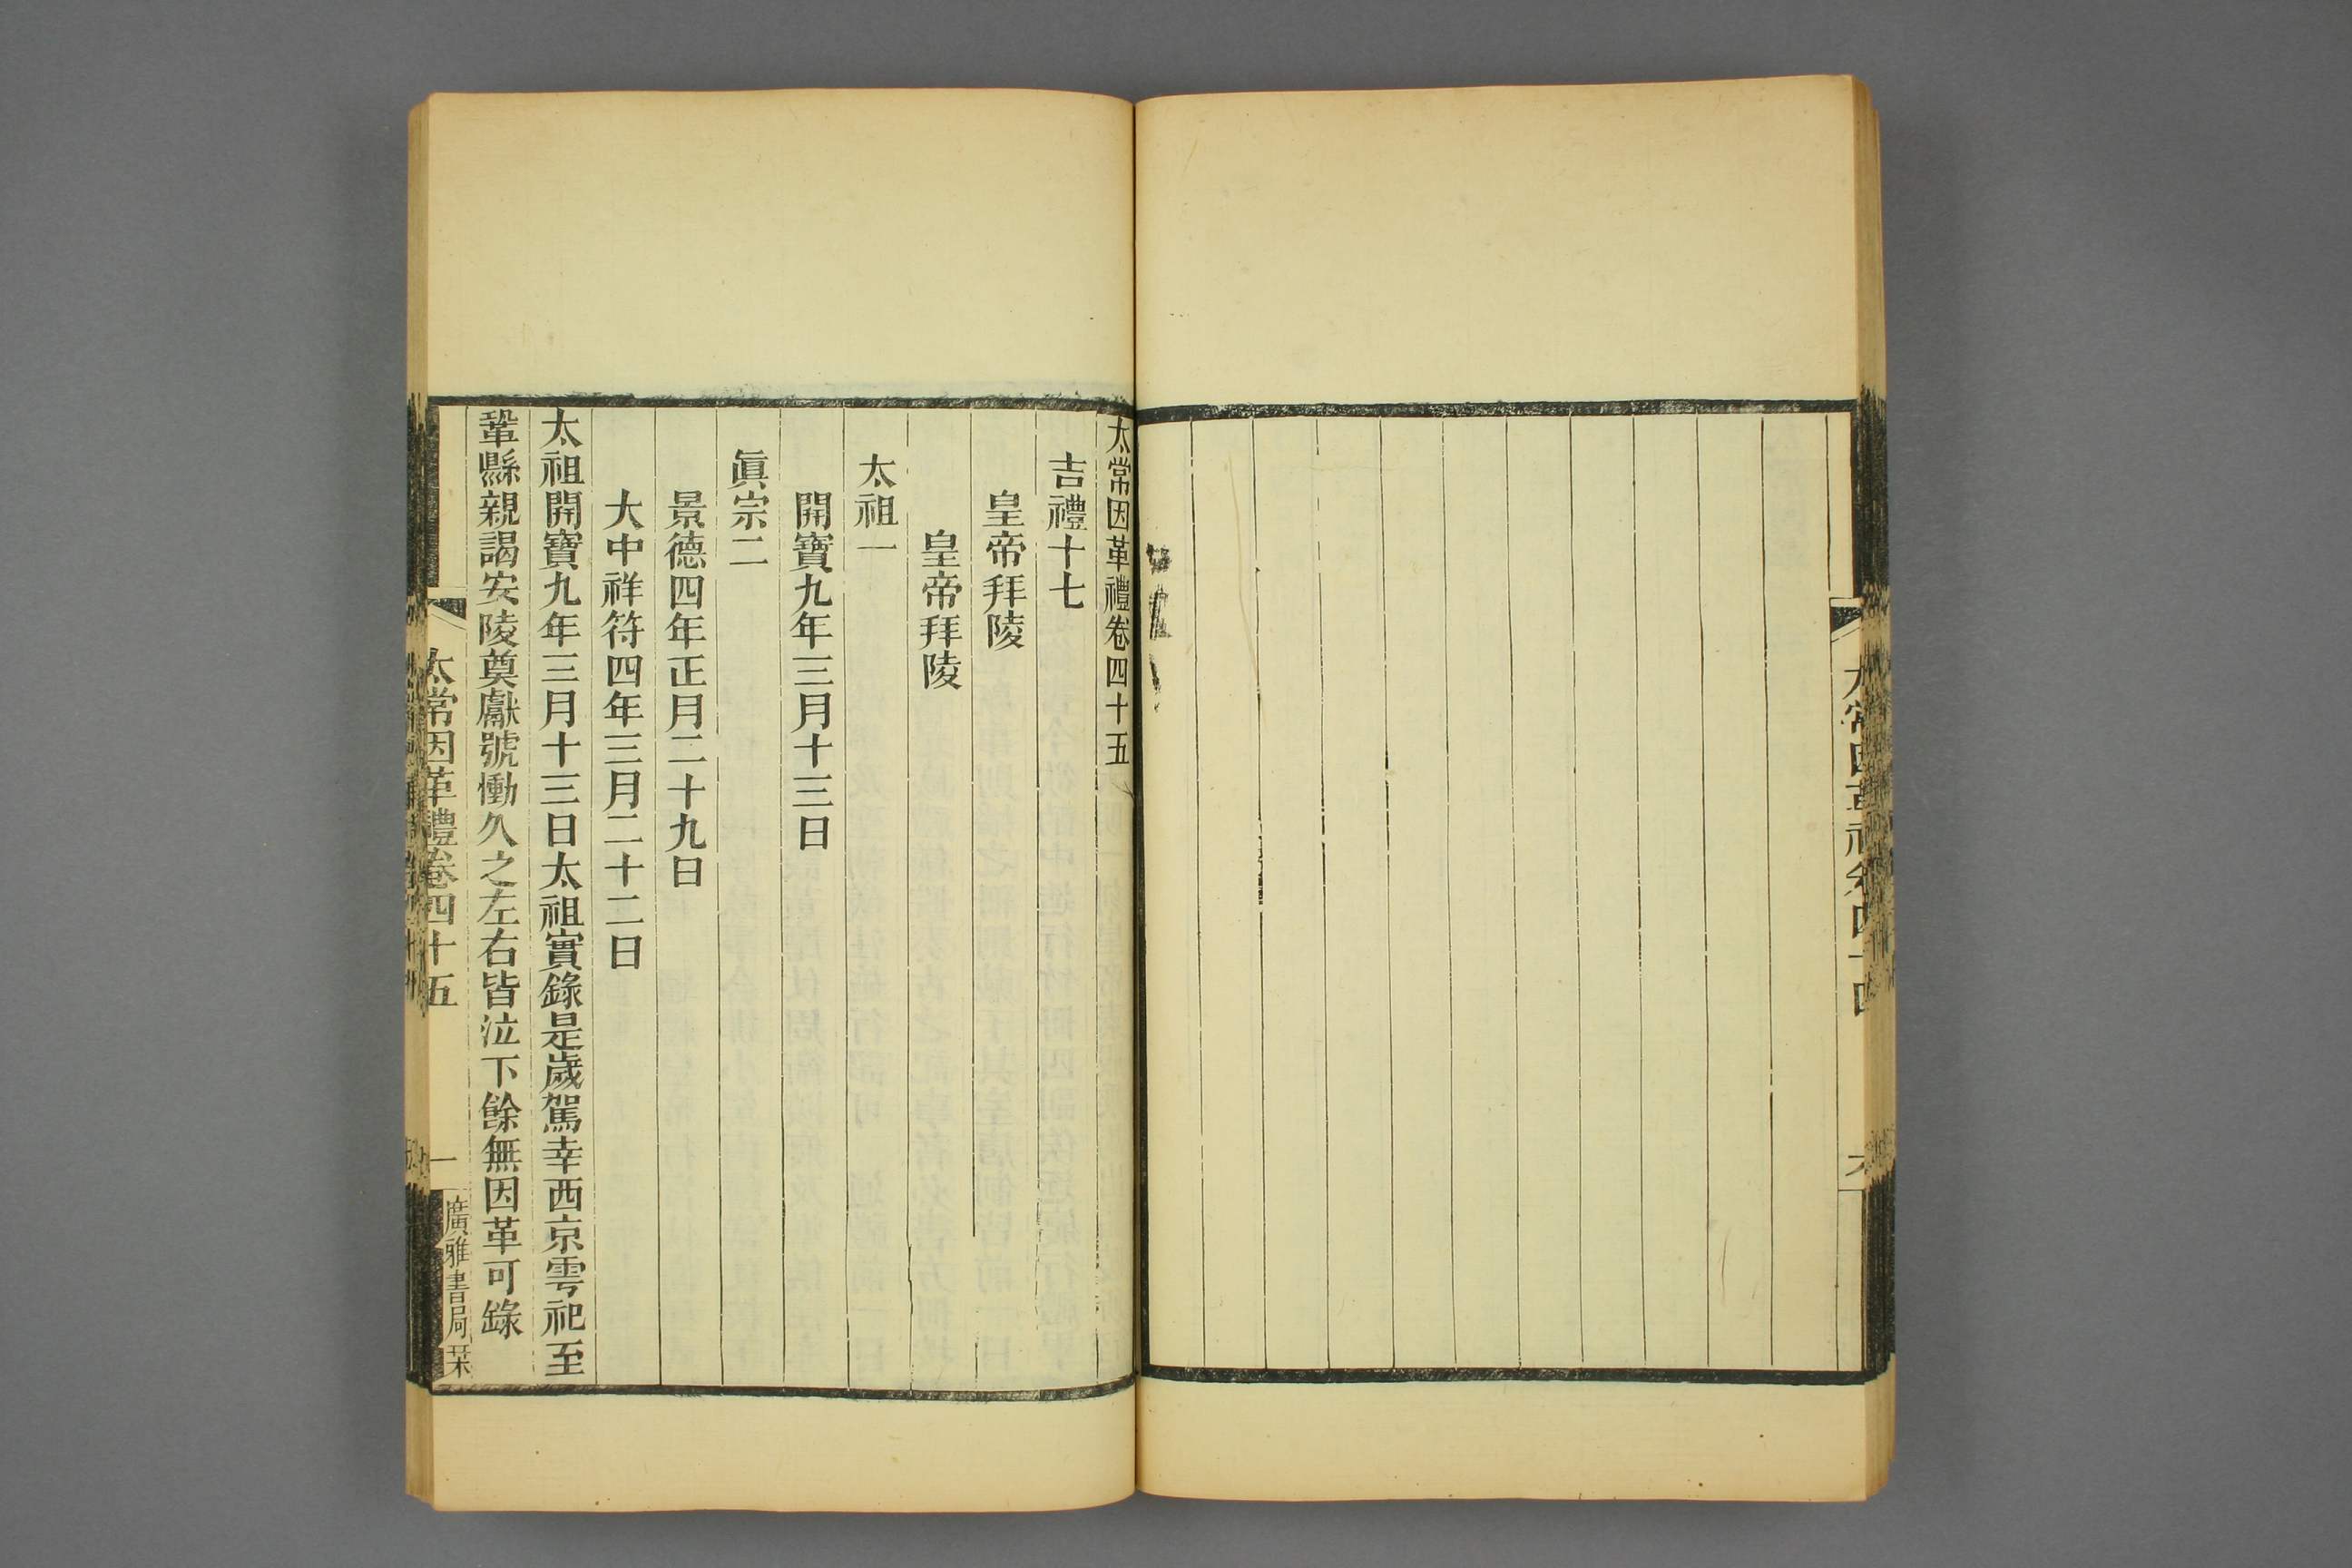 太常因革禮卷四十五
吉禮十七
皇帝拜陵
皇帝拜陵
太祖一
開寶九年三月十三日
眞宗二
景德四年正月二十九日
大中祥符四年三月二十二日
太祖開寶九年三月十三日太祖實錄是歲駕幸西京雩祀至
鞏縣親謁安陵奠獻號慟久之左右皆泣下餘無因革可錄
太常因革禮卷四十五
一
廣雅書局栞